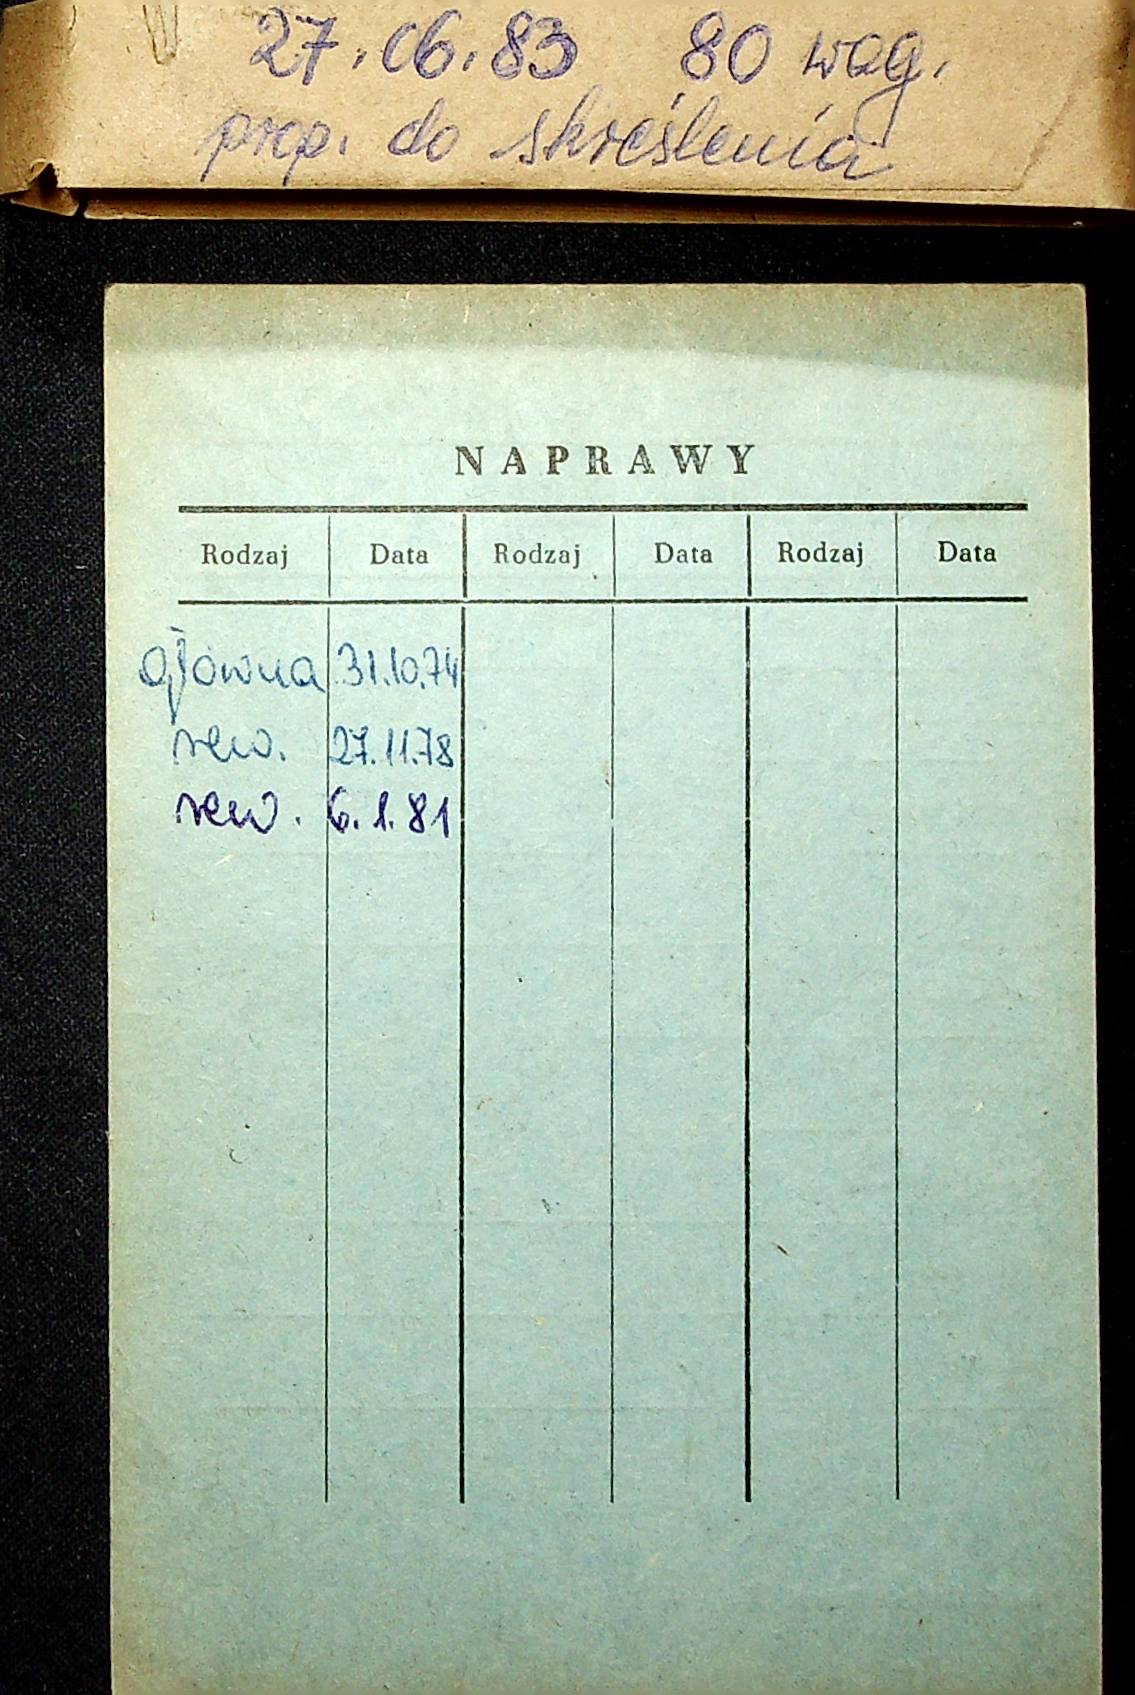 27.06.83 80 wag.
prop. do skreślenia
NAPRAWY
Rodzaj Data Rodzaj Data Rodzaj Data
główna 31.10.74
rew. 27.11.78
rew. 6.1.81